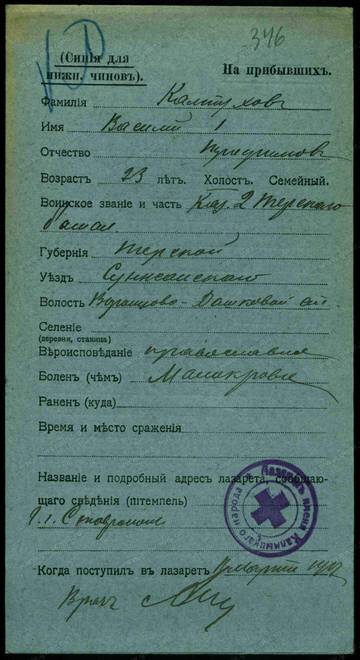 346
(Синія для нижн. чиновъ).
На прибывшихъ.
Фамилія
Имя Василий
Отчество
Возрастъ 23 лѣтъ. Холостъ. Семейный.
Воинское званіе и часть Каз. 2 Терского
батал.
Губернія Терской
Уѣздъ Сунженского
Волость Воронцово-Дашковой ст.
Селеніе
(деревня, станица)
Вѣроисповѣданіе православное
Боленъ (чѣмъ) Малокровіе
Раненъ (куда)
Время и мѣсто сраженія
Названіе и подробный адресъ лазарета, сообщаю-
щаго свѣдѣнія (штемпель)
Лазаретъ имени Калмыцкаго народа
г. Ставрополь
Когда поступилъ въ лазаретъ
Врачъ